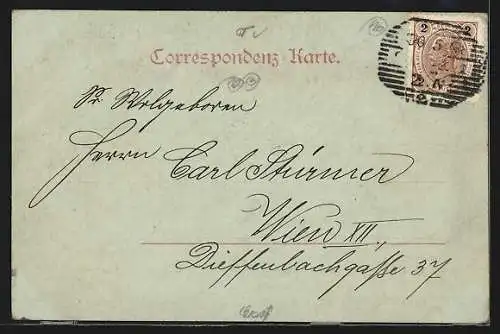 Correspondenz Karte.
2 2
Sr. Wolgeboren
Herrn Carl Stürmer
Wien XII.,
Dieffenbachgaße 37